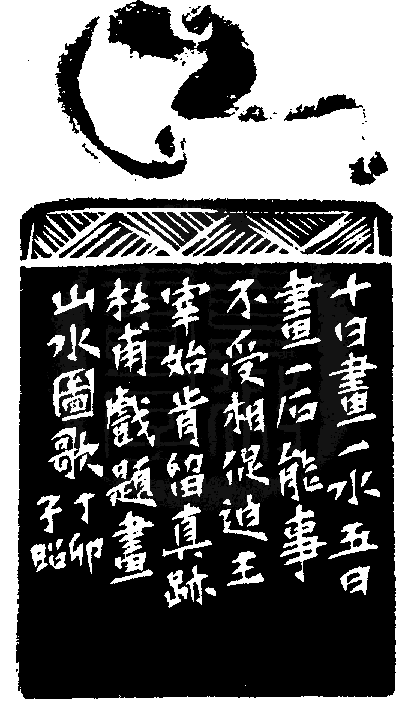 十日畫一水五日
畫一石能事
不受相促迫王
宰始肯留真跡
杜甫戲題畫
山水圖歌丁卯
子昭